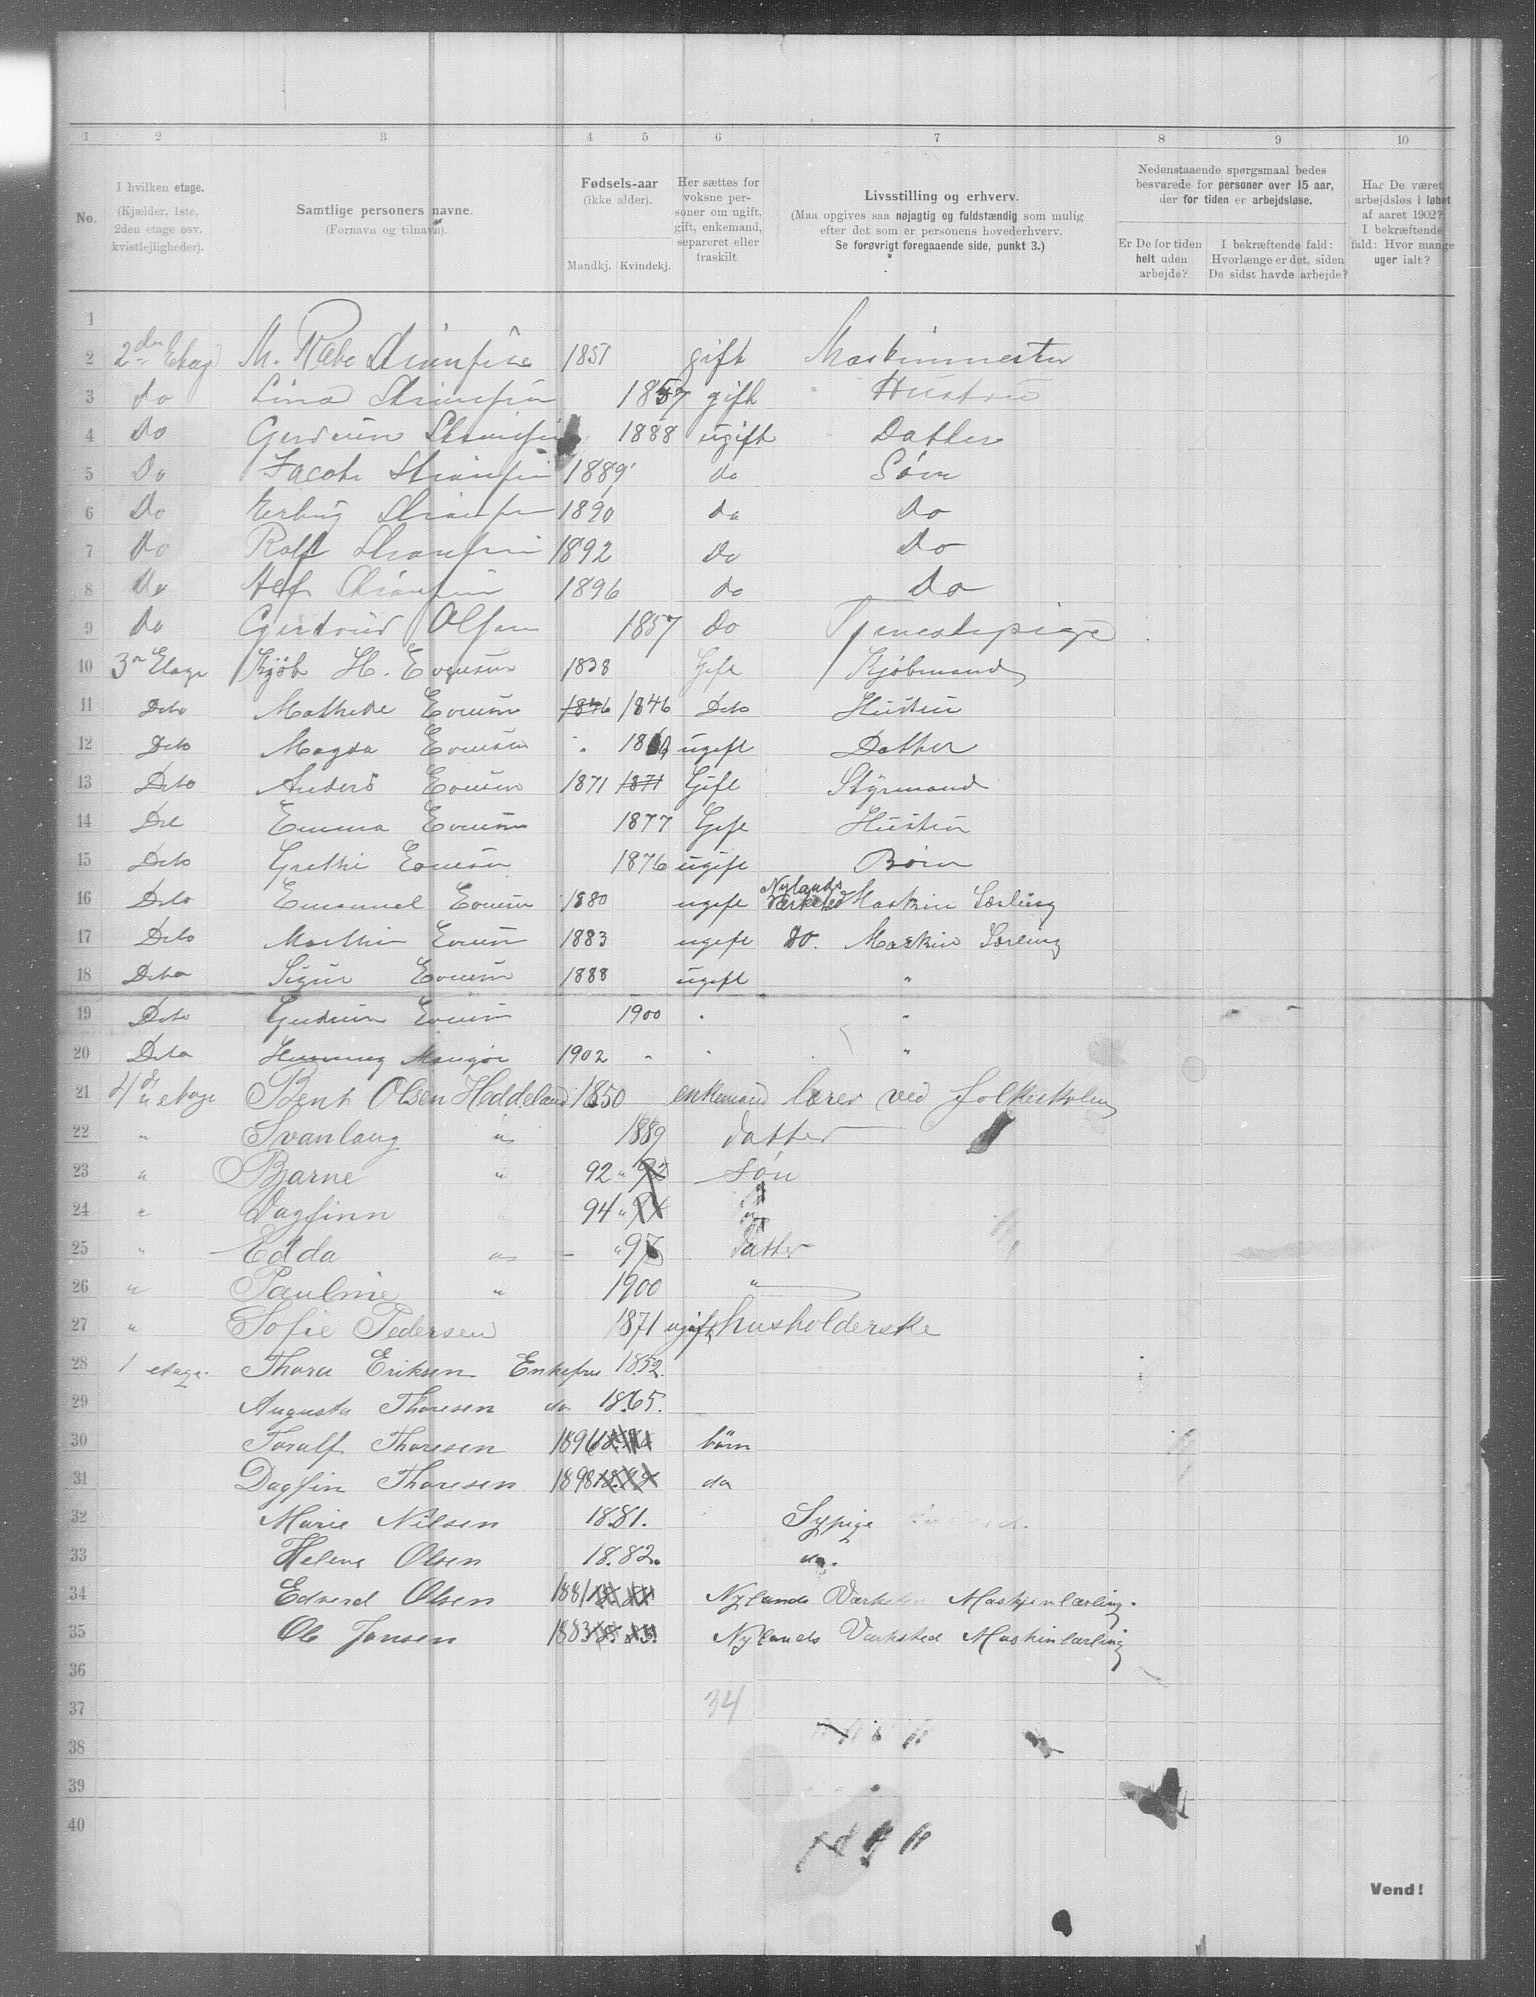 1 2 3 4 5 6 7 8 9 10
No.
I hvilken etage.
(Kjælder, 1ste,
2den etage osv.
kvistlejligheder).
Samtlige personers navne.
(Fornavn og tilnavn).
Fødsels-aar
(ikke alder).
Mandkj. Kvindekj.
Her sættes for
voksne per-
soner om ugift,
gift, enkemand,
separeret eller
fraskilt
Livsstilling og erhverv.
(Maa opgives saa nøjagtig og fuldstændig som mulig
efter det som er personens hovederhverv.
Se forøvrigt foregaaende side, punkt 3.)
Nedenstaaende spørgsmaal bedes
besvarede for personer over 15 aar,
der for tiden er arbejdsløse.
Er De for tiden
helt uden
arbejde?
I bekræftende fald:
Hvorlænge er det, siden
De sidst havde arbejde?
Har De været
arbejdsløs i løbet
af aaret 1902?
I bekræftende
fald: Hvor mange
uger ialt?
1
2 2den Etage M. 1851 gift Maskinmester
3 do Lina 1857 gift Hustru
4 Do 1888 ugift Datter
5 Do Jacob 1889 do Søn
6 Do Erling 1890 do Do
7 Do Rolf 1892 Do Do
8 Do Alf 1896 do Do
9 Do Gertrud Olsen 1857 Do Tjenestepige
10 3 Etage Kjøb H. Evensen 1838 Gift Kjøbmand
11 Dito Mathilde Evensen 1846 1846 Dito Hustru
12 Dito Magda Evensen " ugift Datter
13 Dito Anders Evensen 1871 1871 Gift Styrmand
14 Dit Emma Evensen 1877 Gift Hustru
15 Dito Grethe Evensen 1876 ugift Børn
16 Dito Emanuel Evensen 1880 ugift Nylands Værksted Maskin Lærling
17 Dito Marthin Evensen 1883 ugift Do. Maskin Lærling
18 Dito Evensen 1888 ugift "
19 Dito Gudrun Evensen 1900 " "
20 Dito Henning 1902 " " "
21 4de etage Bent Olsen Heddeland 1850 enkemand lærer ved folkeskolen
22 " Svanlaug " 1889 datter
23 " Bjarne " 92 " 92 søn
24 " Dagfinn 94 " "
25 " Edda " datter
26 " Pauline " 1900 "
27 " Sofie Pedersen 1871 ugift husholderske
28 1 etage. Thora Eriksen Enkefru 1852.
29 Augusta Thoresen do 1865.
30 Toralf Thoresen 1896 børn
31 Dagfin Thoresen 1898 do
32 Marie Nilsen 1881. Sypige
33 Helene Olsen 1882. do.
34 Edvard Olsen 1881 Nylands Værksted Maskjinlærling.
35 Ole Jonsen 1883 Nylands Værksted Maskinlærling
36
37 34
38
39
40
Vend!